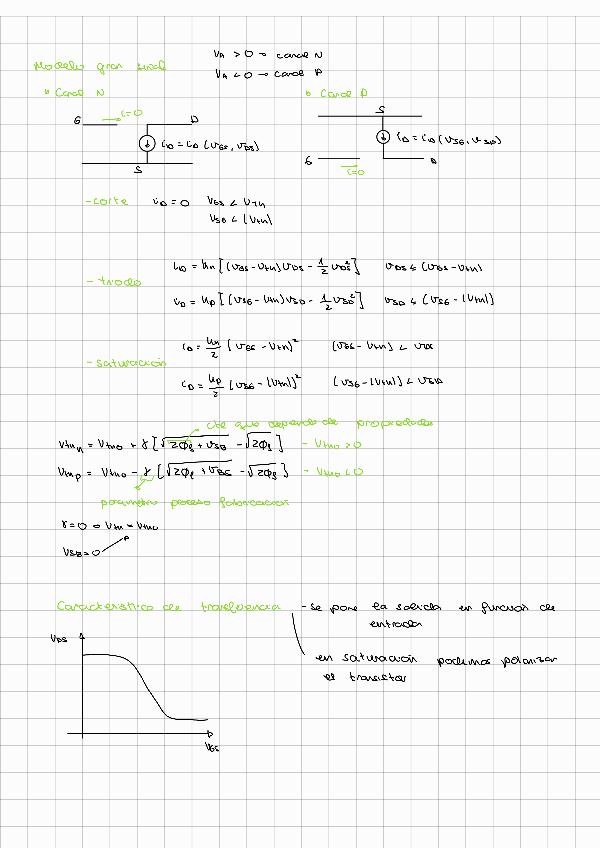 Modelo gran señal
V_A > 0 → canal N
V_A < 0 → canal P
• Canal N
• Canal P
G i=0 D
i_D = i_D (v_GS, v_DS)
S
S
i_D = i_D (v_SG, v_SD)
G i=0 D
- corte i_D = 0 v_GS < V_tn
v_SG < |V_tn|
- triodo
i_D = k_n [(v_GS - V_tn) v_DS - 1/2 v_DS²] v_DS ≤ (v_GS - V_tn)
i_D = k_p [(v_SG - |V_tn|) v_SD - 1/2 v_SD²] v_SD ≤ (v_SG - |V_tn|)
- saturación
i_D = k_n/2 (v_GS - V_tn)² (v_GS - V_tn) < v_DS
i_D = k_p/2 (v_SG - |V_tn|)² (v_SG - |V_tn|) < v_SD
cte que depende de propiedades
V_tn_n = V_tno + γ [√(2φ_f + v_SB) - √(2φ_f)] - V_tno > 0
V_tn_p = V_tno - γ [√(2φ_f + v_BS) - √(2φ_f)] - V_tno < 0
parámetro proceso fabricación
γ = 0 → V_tn = V_tno
V_SB = 0
Característica de transferencia - se pone la salida en función de
entrada
en saturación podemos polarizar
el transistor
V_DS
V_GS